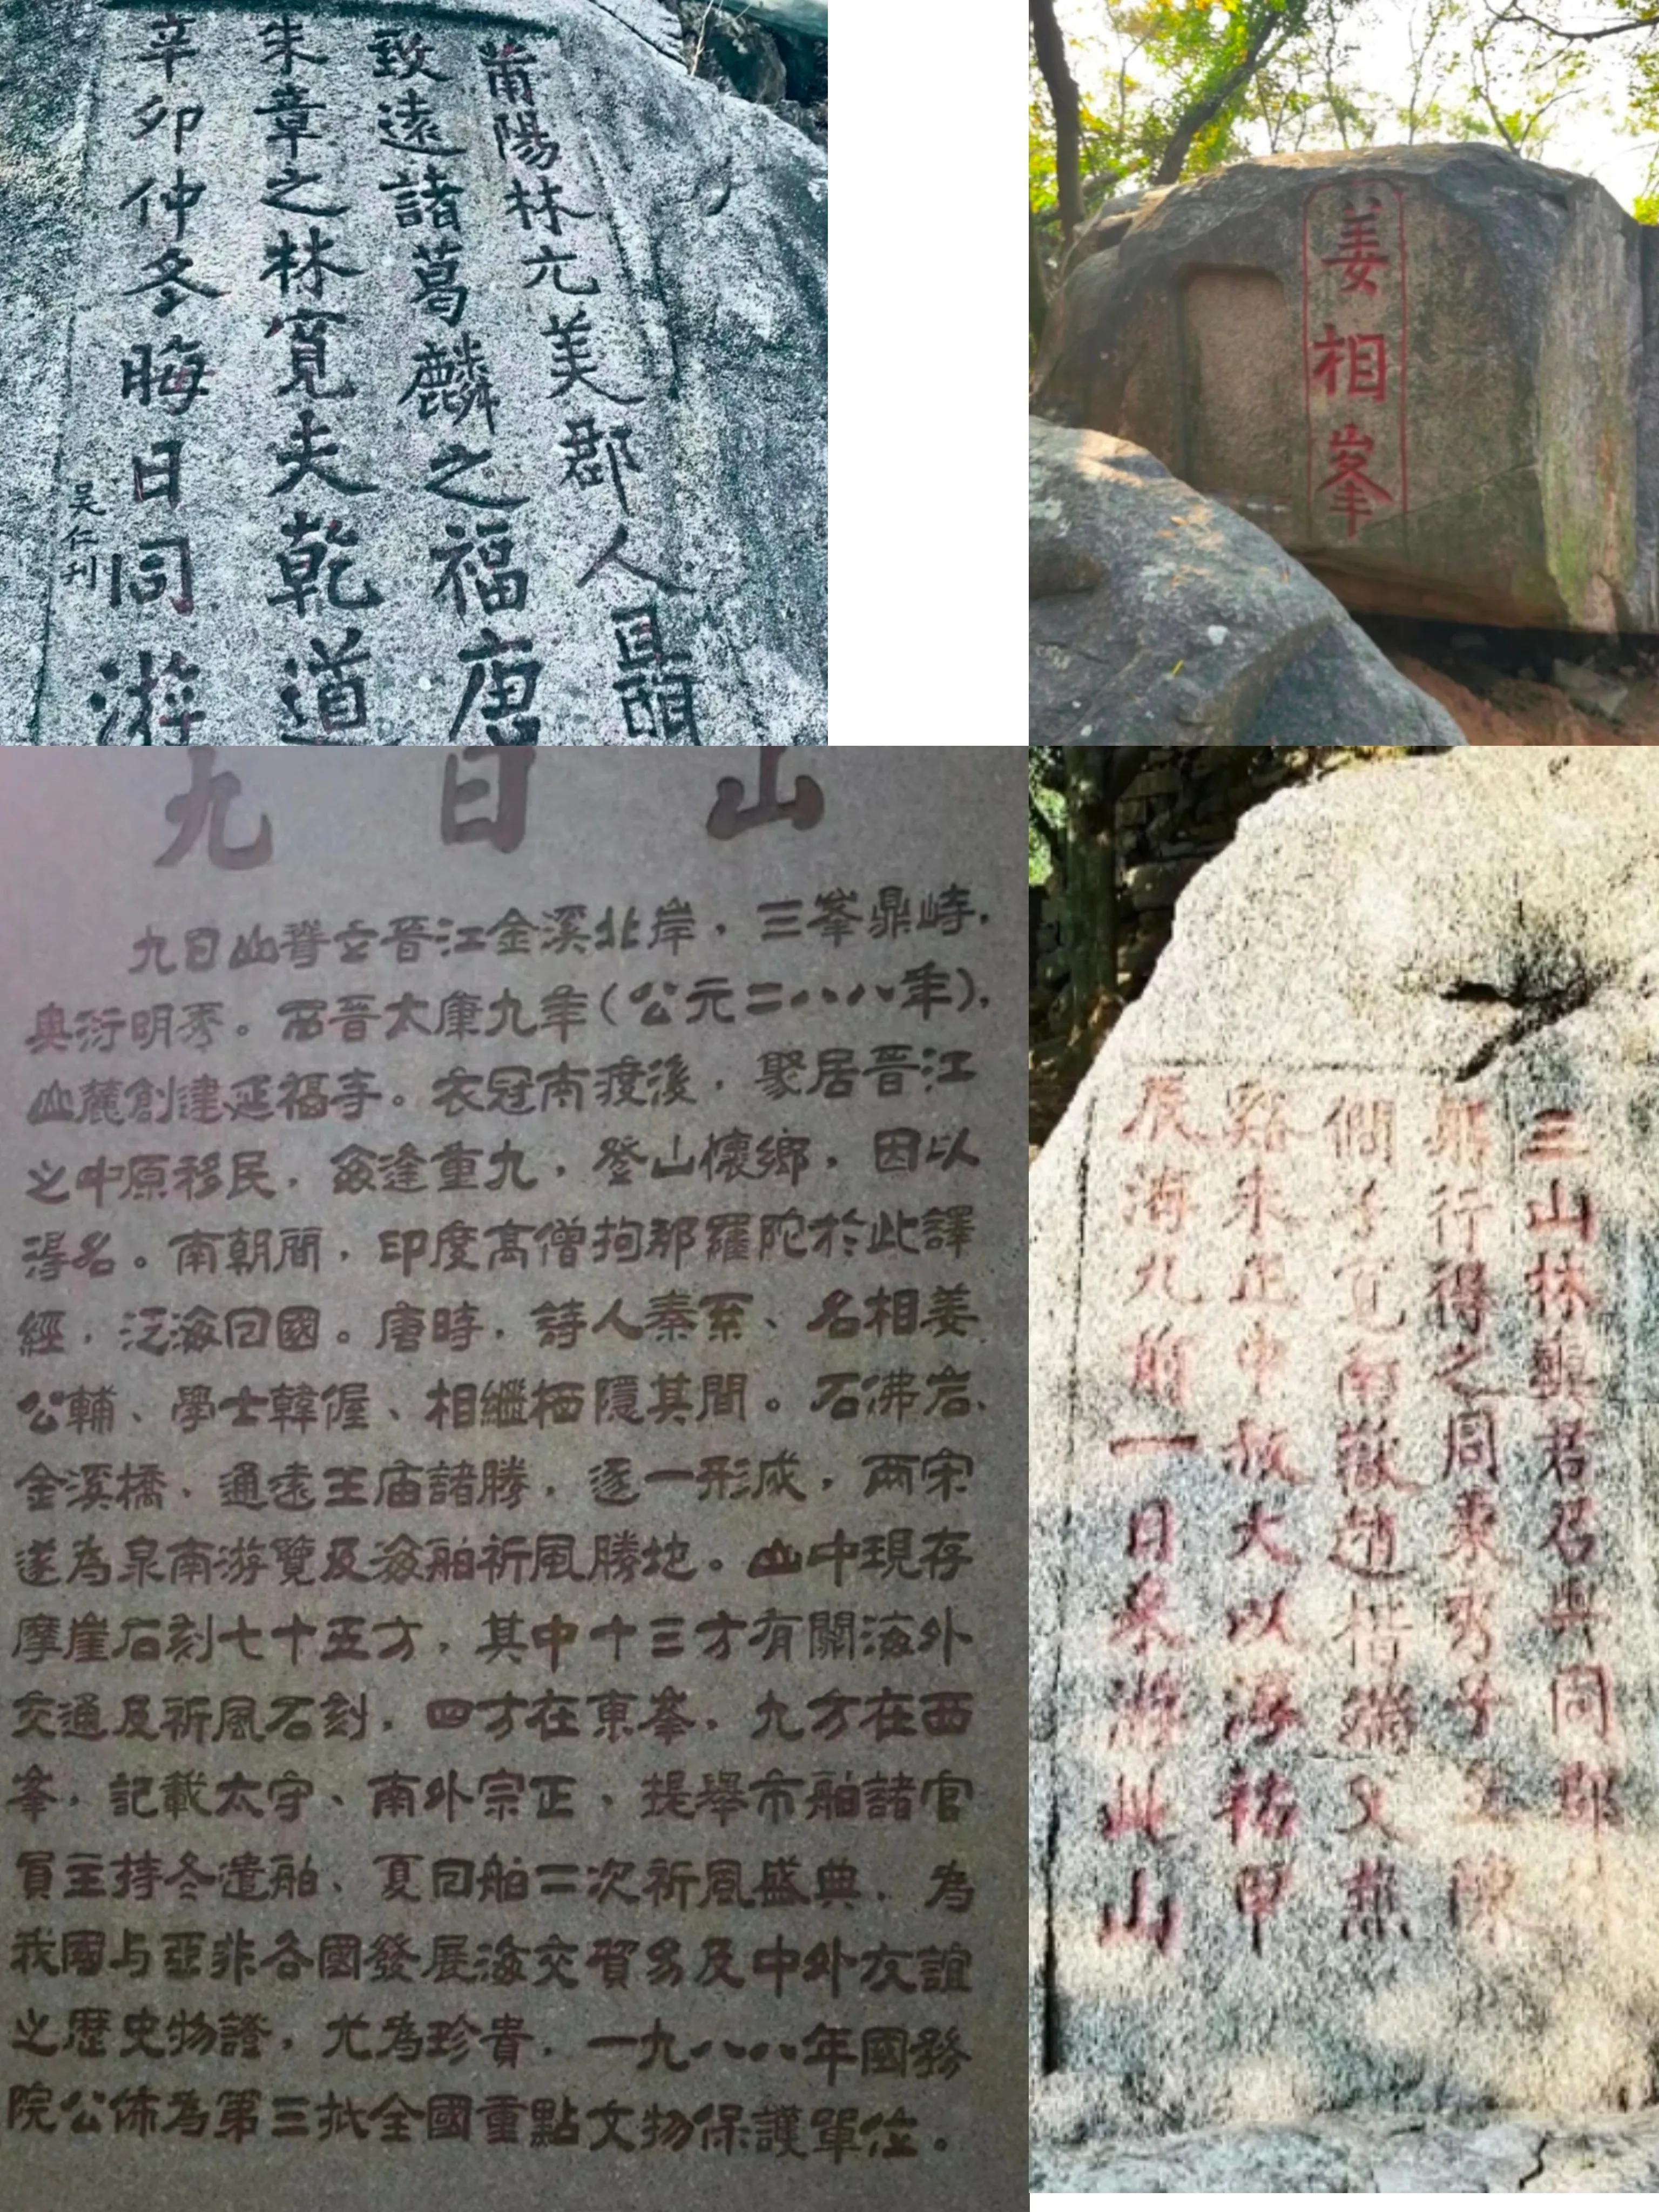 莆陽林亢美郡人聶
致遠諸葛麟之福唐
朱章之林寬夫乾道
辛卯仲冬晦日同游
吴仁刊
姜相峯
九日山
九日山聳立晉江金溪北岸，三峯鼎峙，
奥衍明秀。西晉太康九年（公元二八八年），
山麓創建延福寺。衣冠南渡後，聚居晉江
之中原移民，每逢重九，登山懷鄉，因以
得名。南朝間，印度高僧拘那羅陀於此譯
經，泛海回國。唐時，詩人秦系、名相姜
公輔、學士韓偓、相繼栖隱其間。石佛岩、
金溪橋、通遠王庙諸勝，逐一形成，兩宋
遂為泉南游覽及海舶祈風勝地。山中現存
摩崖石刻七十五方，其中十三方有關海外
交通及祈風石刻，四方在東峯，九方在西
峯，記載太守、南外宗正、提舉市舶諸官
員主持冬遣舶、夏回舶二次祈風盛典，為
我國与亞非各國發展海交貿易及中外友誼
之歷史物證，尤為珍貴，一九八八年國務
院公佈為第三批全國重點文物保護單位。
三山林君召與同郡
行得之周東子陳
倜子寬趙楷又燕
朱正中大以淳祐甲
辰海九日一日來游此山